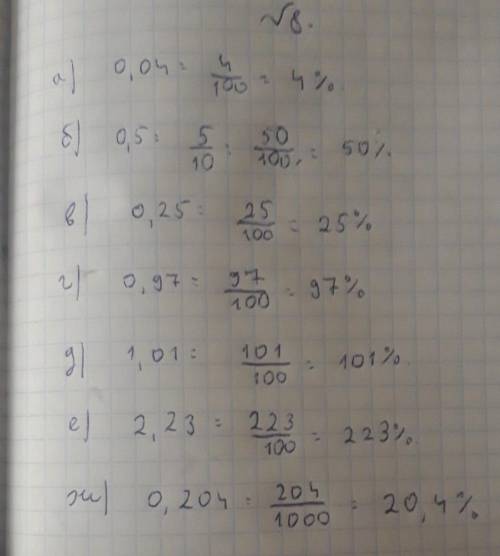 №8.
а) 0,04 = 4/100 = 4%.
б) 0,5 = 5/10 = 50/100 = 50%.
в) 0,25 = 25/100 = 25%
г) 0,97 = 97/100 = 97%
д) 1,01 = 101/100 = 101%.
е) 2,23 = 223/100 = 223%.
ж) 0,204 = 204/1000 = 20,4%